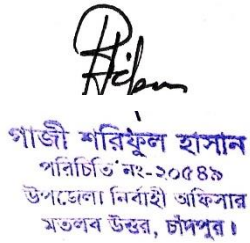 গাজী শরিফুল হাসান
পরিচিতি নং-২০৫৪৯
উপজেলা নির্বাহী অফিসার
মতলব উত্তর, চাঁদপুর।